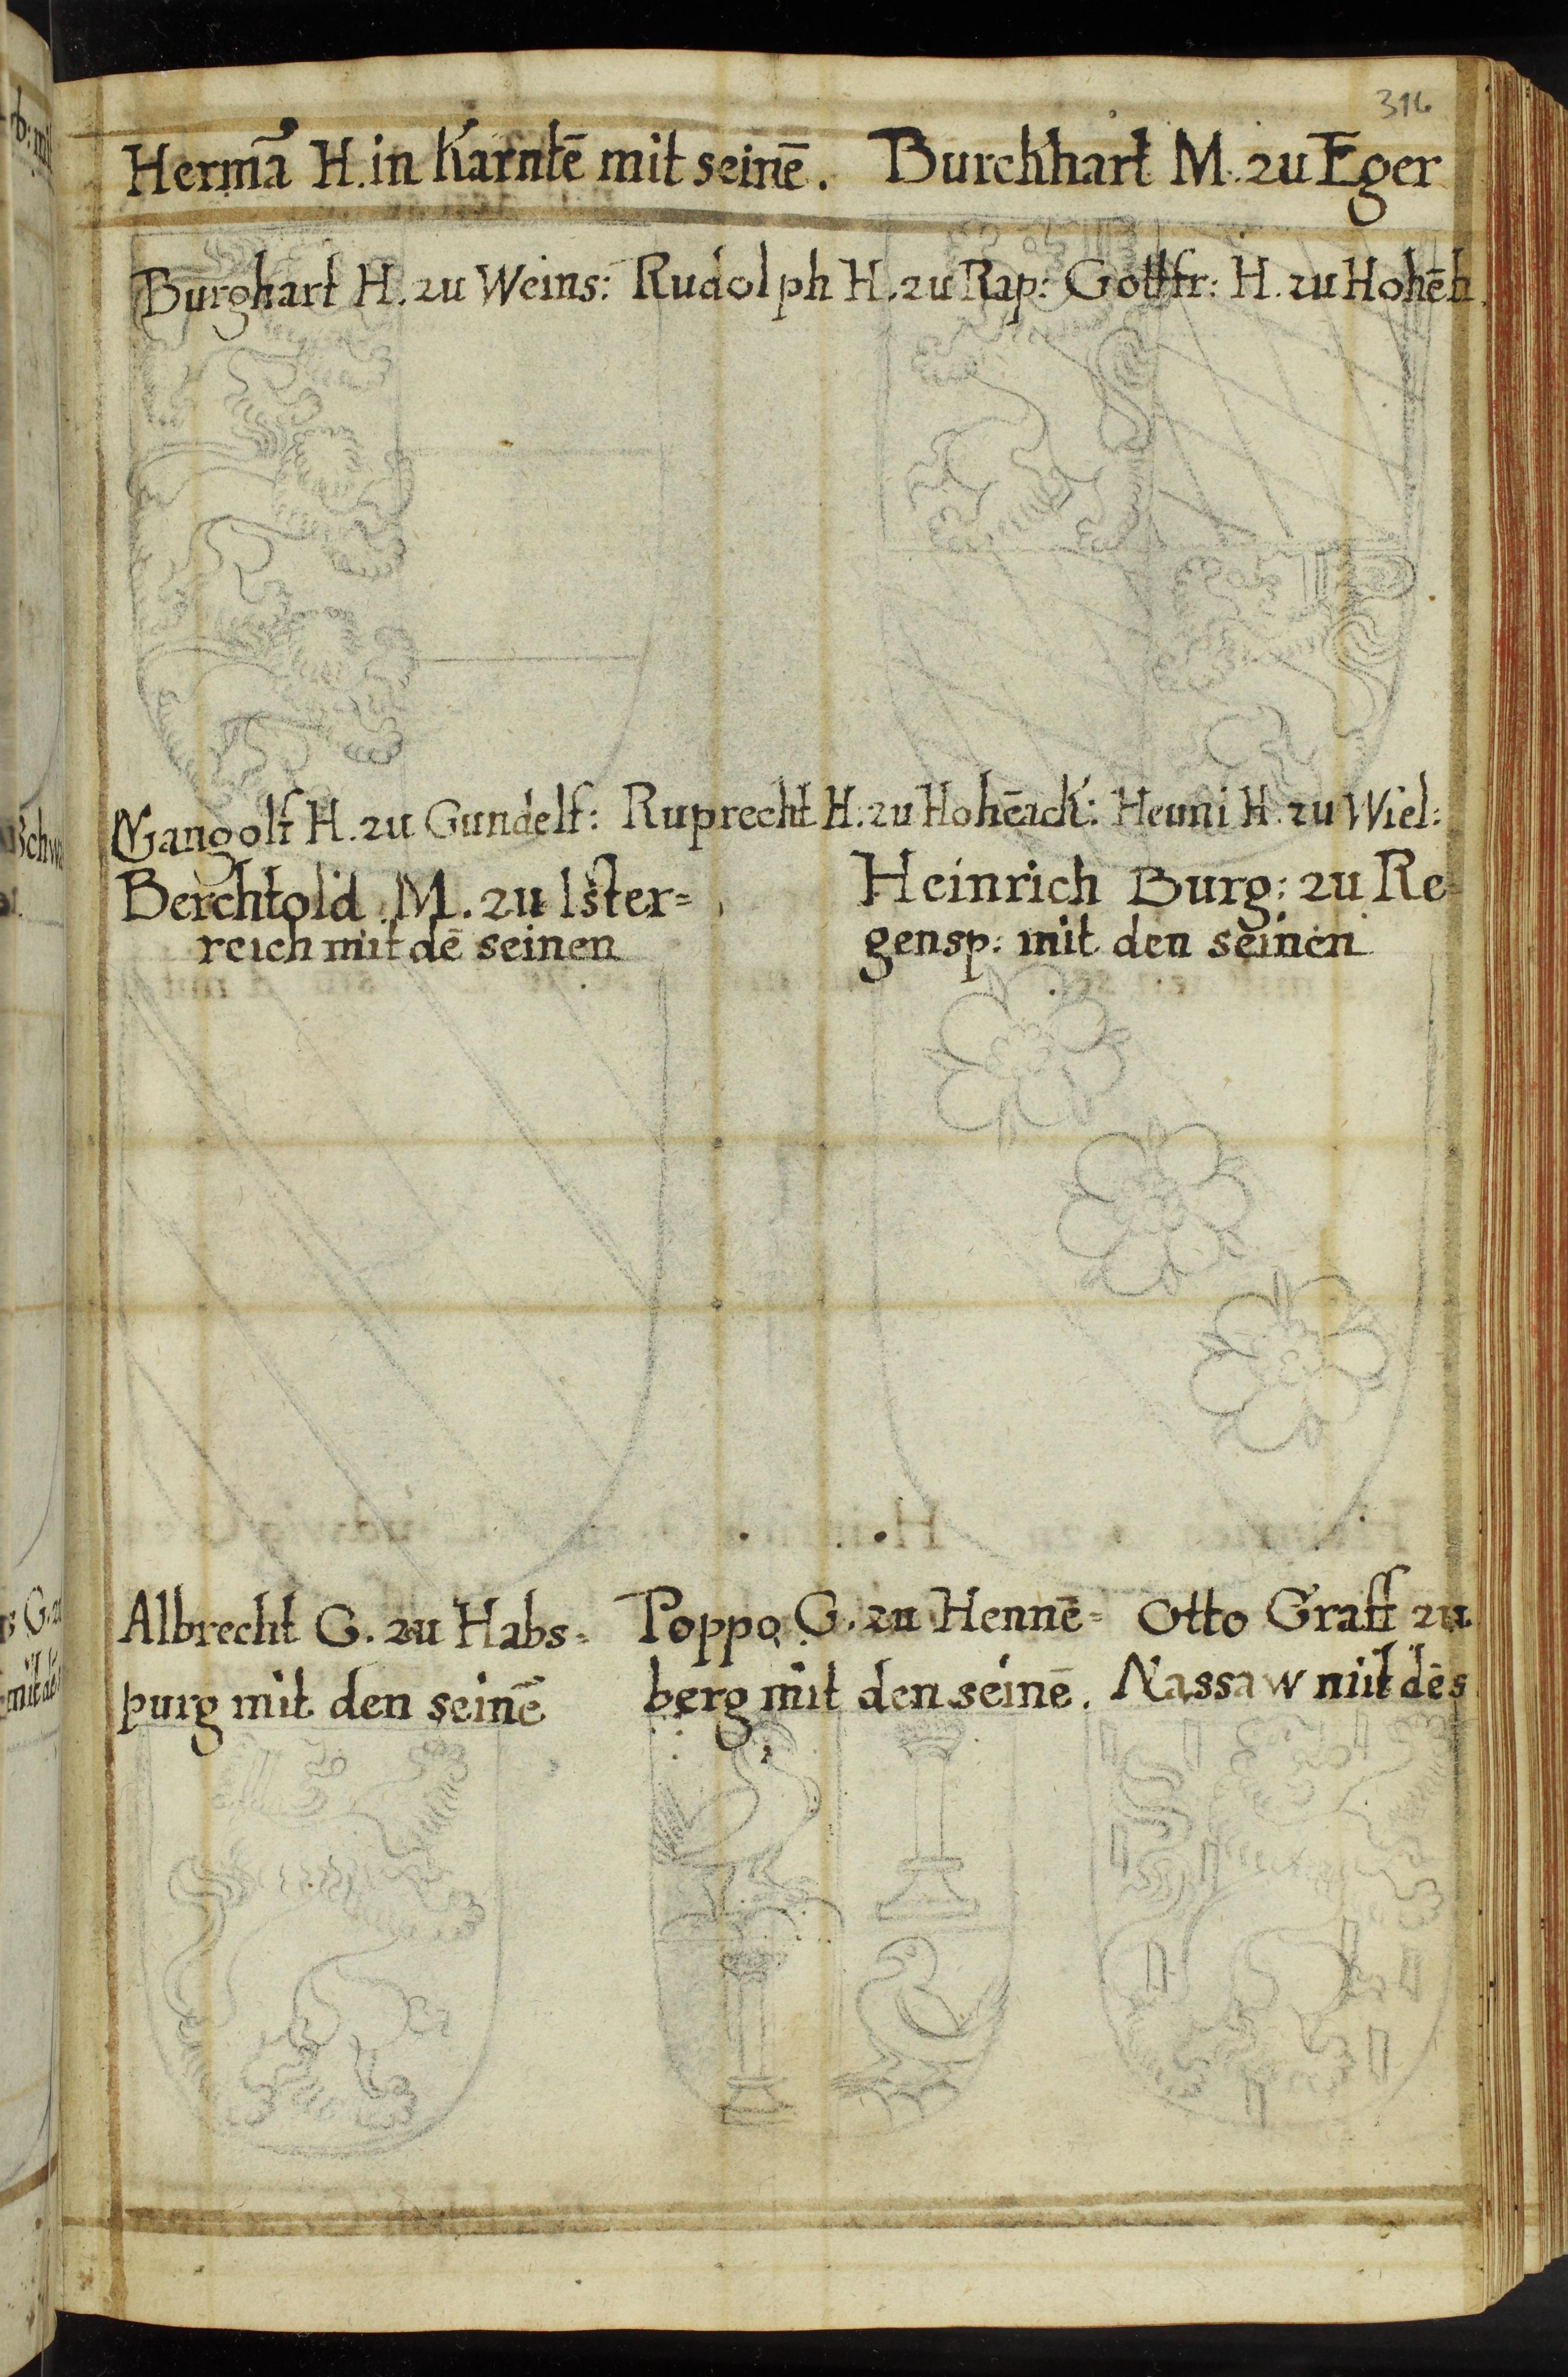 316
Hermā H. in Karntē mit seinē. Burckhart M. zu Eger
Burghart H. zu Weins: Rudolph H. zu Rap: Gottfr: H. zu Hohēh
Gangolf H. zu Gundelf: Ruprecht H. zu Hohēack: Heuni H. zu Wiel:
Berchtold M. zu Ister=
reich mit dē seinen
Heinrich Burg: zu Re-
gensp: mit den seinen
Albrecht G. zu Habs=
purg mit den seinē
Poppo G. zu Hennē=
berg mit den seinē.
Otto Graff zu
Nassaw mit dē s